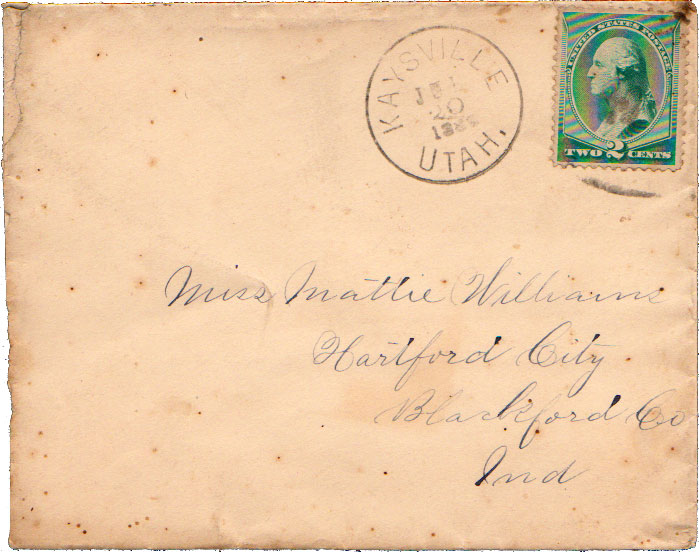 KAYSVILLE
JUL
20
UTAH.
UNITED STATES POSTAGE
TWO 2 CENTS
Miss Mattie Williams
Hartford City
Blackford Co
Ind